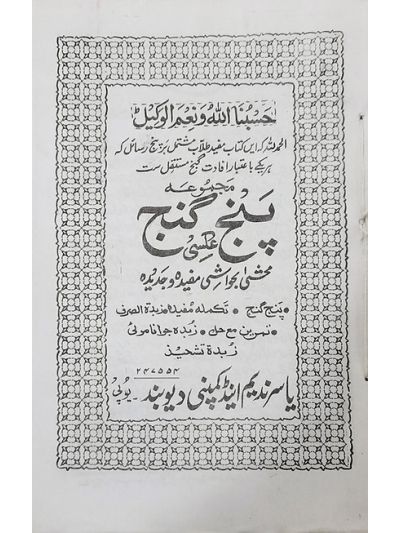 حسبنا اللہ ونعم الوکیل
الحمد للہ کہ ایں کتاب مفید طلاب مشتمل بر پنج رسائل کہ
ہر یکے باعتبار افادت گنج مستقل ست
مجموعہ
پنج گنج
عکسی
محشی بحواشی مفیدہ وجدیدہ
• پنج گنج • تکملہ مفیدہ • زبدة الصرف
• تمرین مع حل • زبدہ جوانامونی
زبدة تشحیذ
۲۴۷۵۵۴
یاسر ندیم اینڈ کمپنی دیوبند۔ یوپی